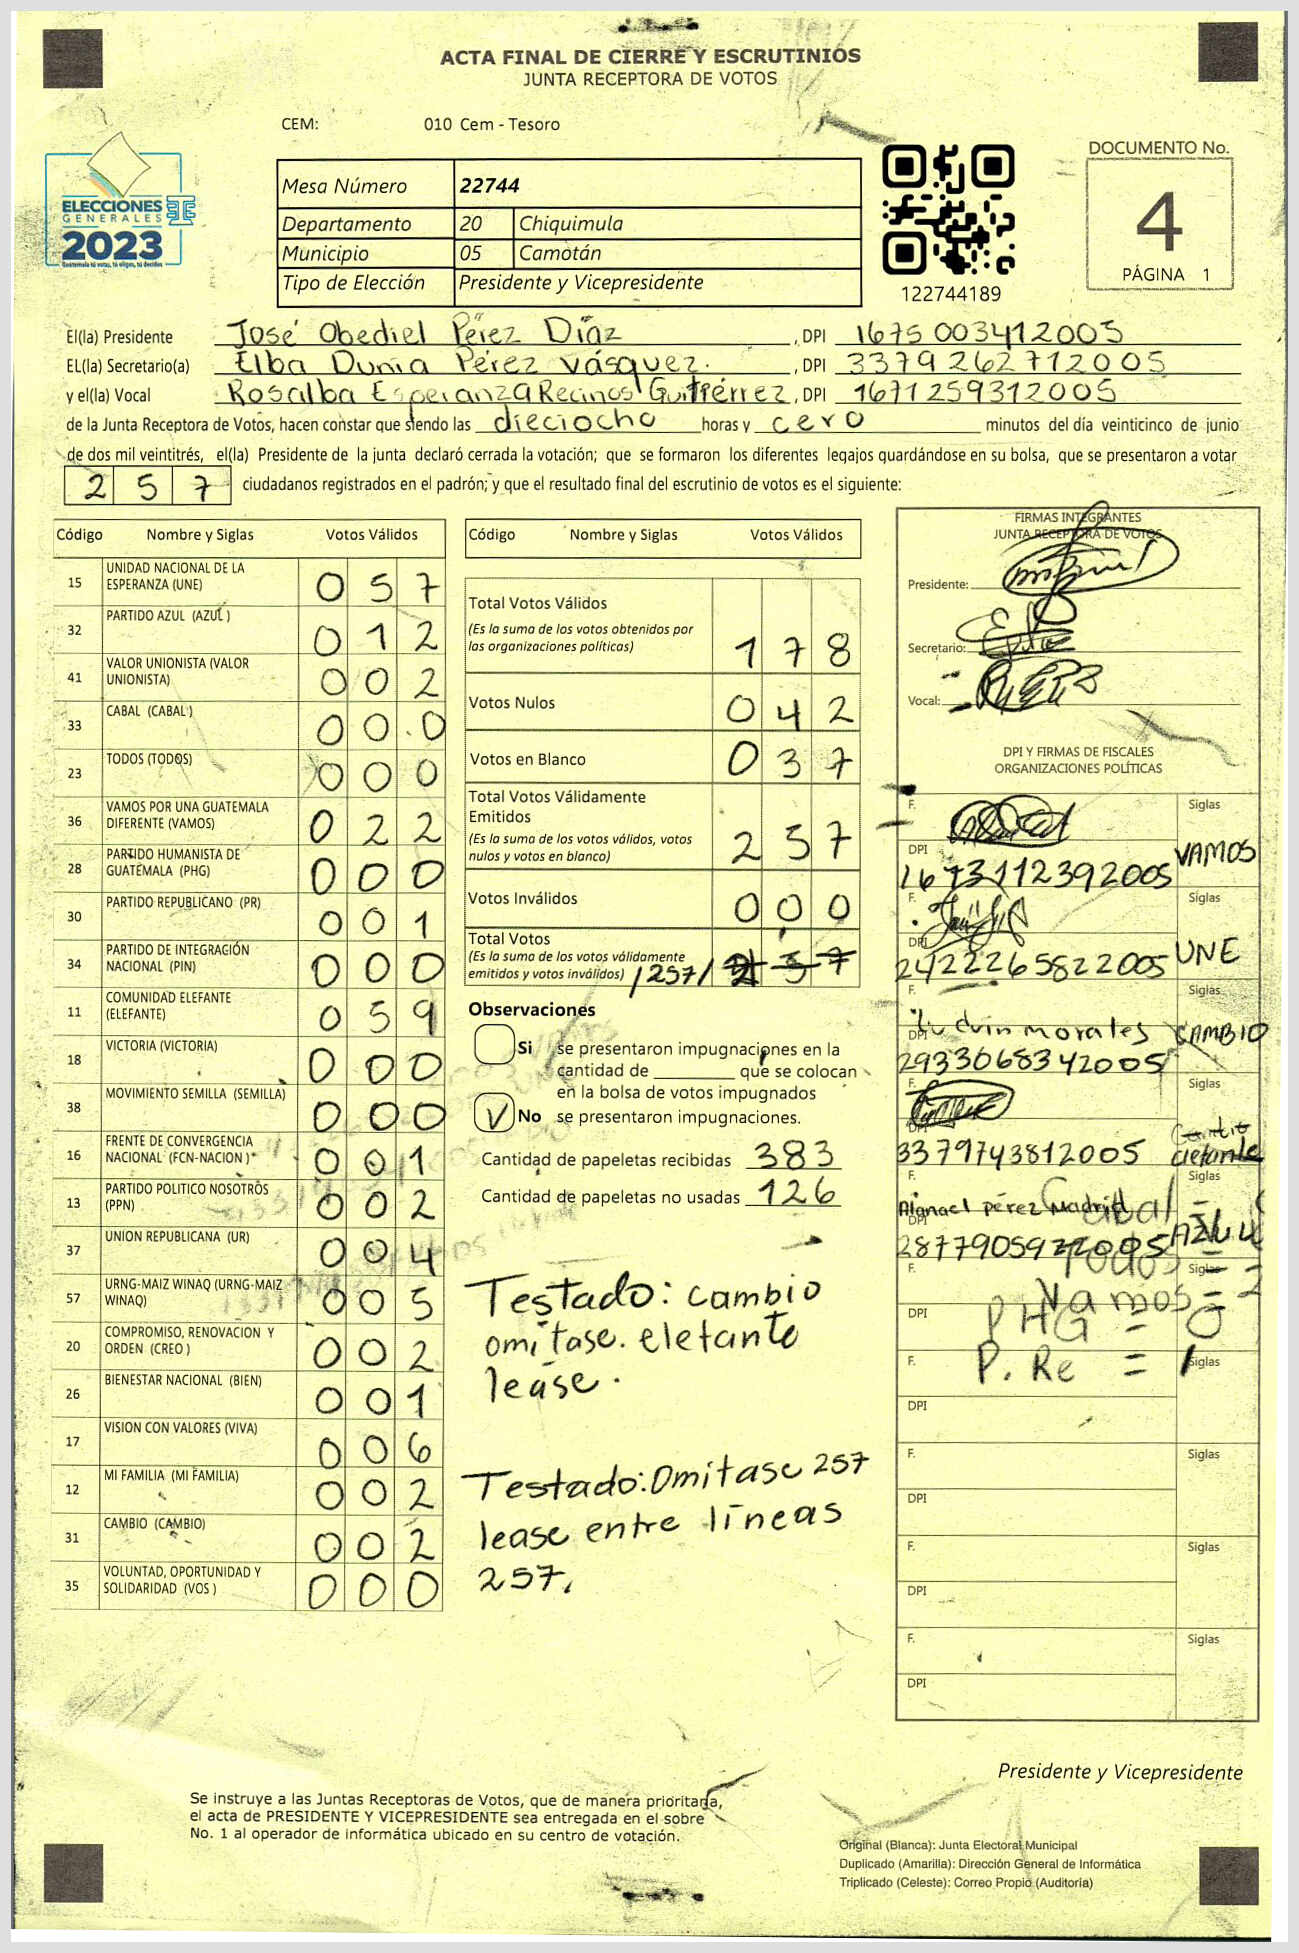 ACTA FINAL DE CIERRE Y ESCRUTINIOS
JUNTA RECEPTORA DE VOTOS
CEM: 010 Cem - Tesoro
ELECCIONES
GENERALES
2023
Guatemala tú votas, tú eliges, tú decides
Mesa Número 22744
Departamento 20 Chiquimula
Municipio 05 Camotán
Tipo de Elección Presidente y Vicepresidente
122744189
DOCUMENTO No.
4
PÁGINA 1
El(la) Presidente José Obediel Pérez Díaz, DPI 1675003412005
EL(la) Secretario(a) Elba Dunia Pérez Vásquez., DPI 3379262712005
y el(la) Vocal Rosalba Esperanza Recinos Gutiérrez, DPI 1671259312005
de la Junta Receptora de Votos, hacen constar que siendo las dieciocho horas y cero minutos del día veinticinco de junio
de dos mil veintitrés, el(la) Presidente de la junta declaró cerrada la votación; que se formaron los diferentes legajos guardándose en su bolsa, que se presentaron a votar
257 ciudadanos registrados en el padrón; y que el resultado final del escrutinio de votos es el siguiente:
Código Nombre y Siglas Votos Válidos
15 UNIDAD NACIONAL DE LA ESPERANZA (UNE) 057
32 PARTIDO AZUL (AZUL ) 012
41 VALOR UNIONISTA (VALOR UNIONISTA) 002
33 CABAL (CABAL ) 000
23 TODOS (TODOS) 000
36 VAMOS POR UNA GUATEMALA DIFERENTE (VAMOS) 022
28 PARTIDO HUMANISTA DE GUATEMALA (PHG) 000
30 PARTIDO REPUBLICANO (PR) 001
34 PARTIDO DE INTEGRACIÓN NACIONAL (PIN) 000
11 COMUNIDAD ELEFANTE (ELEFANTE) 059
18 VICTORIA (VICTORIA) 000
38 MOVIMIENTO SEMILLA (SEMILLA) 000
16 FRENTE DE CONVERGENCIA NACIONAL (FCN-NACION ) 001
13 PARTIDO POLITICO NOSOTROS (PPN) 002
37 UNION REPUBLICANA (UR) 004
57 URNG-MAIZ WINAQ (URNG-MAIZ WINAQ) 005
20 COMPROMISO, RENOVACION Y ORDEN (CREO ) 002
26 BIENESTAR NACIONAL (BIEN) 001
17 VISION CON VALORES (VIVA) 006
12 MI FAMILIA (MI FAMILIA) 002
31 CAMBIO (CAMBIO) 002
35 VOLUNTAD, OPORTUNIDAD Y SOLIDARIDAD (VOS ) 000
Código Nombre y Siglas Votos Válidos
Total Votos Válidos
(Es la suma de los votos obtenidos por
las organizaciones políticas) 178
Votos Nulos 042
Votos en Blanco 037
Total Votos Válidamente
Emitidos
(Es la suma de los votos válidos, votos
nulos y votos en blanco) 257
Votos Inválidos 000
Total Votos
(Es la suma de los votos válidamente
emitidos y votos inválidos) /257/
Observaciones
Si se presentaron impugnaciones en la
cantidad de ________ que se colocan
en la bolsa de votos impugnados
V No se presentaron impugnaciones.
Cantidad de papeletas recibidas 383
Cantidad de papeletas no usadas 126
Testado: cambio
omítase. eletante
lease.
Testado: Omitase 257
lease entre líneas
257.
FIRMAS INTEGRANTES
JUNTA RECEPTORA DE VOTOS
Presidente:
Secretario:
Vocal:
DPI Y FIRMAS DE FISCALES
ORGANIZACIONES POLÍTICAS
F. Siglas
DPI 1673112392005 VAMOS
F. Siglas
DPI 2422265822005 UNE
F. Siglas
Ludvin morales
DPI 2933068342005 CAMBIO
F. Siglas
DPI 3379743812005
F. Siglas
Pérez Madrid
DPI 2877905922005 AZUL
Cabal =
Todos =
F. Siglas
Vamos = 2
DPI PHG = 0
F. P. Re = 1 Siglas
DPI
F. Siglas
DPI
F. Siglas
DPI
F. Siglas
DPI
Presidente y Vicepresidente
Se instruye a las Juntas Receptoras de Votos, que de manera prioritaria,
el acta de PRESIDENTE Y VICEPRESIDENTE sea entregada en el sobre
No. 1 al operador de informática ubicado en su centro de votación.
Original (Blanca): Junta Electoral Municipal
Duplicado (Amarilla): Dirección General de Informática
Triplicado (Celeste): Correo Propio (Auditoría)